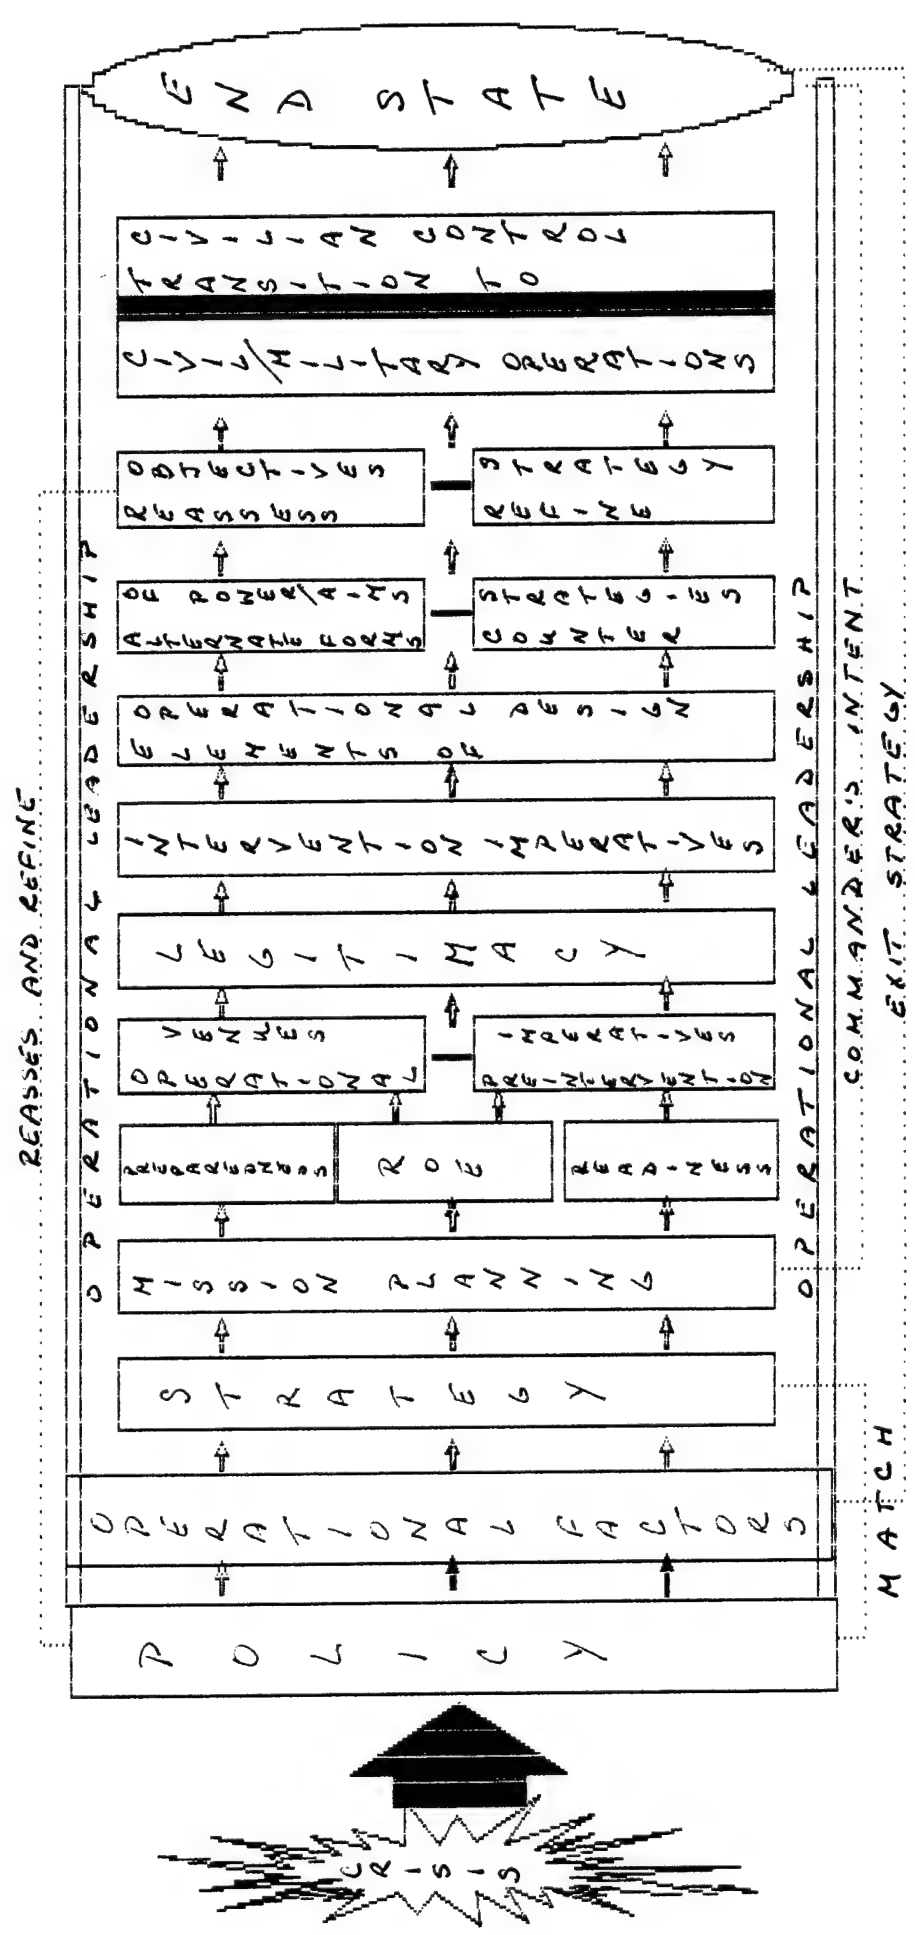 CRISIS
POLICY
OPERATIONAL FACTORS
STRATEGY
MISSION PLANNING
PREPAREDNESS
ROE
READINESS
OPERATIONAL
VENUES
PREINTERVENTION
IMPERATIVES
LEGITIMACY
INTERVENTION IMPERATIVES
ELEMENTS OF
OPERATIONAL DESIGN
ALTERNATE FORMS
OF POWER/AIMS
COUNTER
STRATEGIES
REASSESS
OBJECTIVES
REFINE
STRATEGY
CIVIL/MILITARY OPERATIONS
TRANSITION TO
CIVILIAN CONTROL
END STATE
REASSES AND REFINE
OPERATIONAL LEADERSHIP
OPERATIONAL LEADERSHIP
COMMANDER'S INTENT
EXIT STRATEGY
MATCH